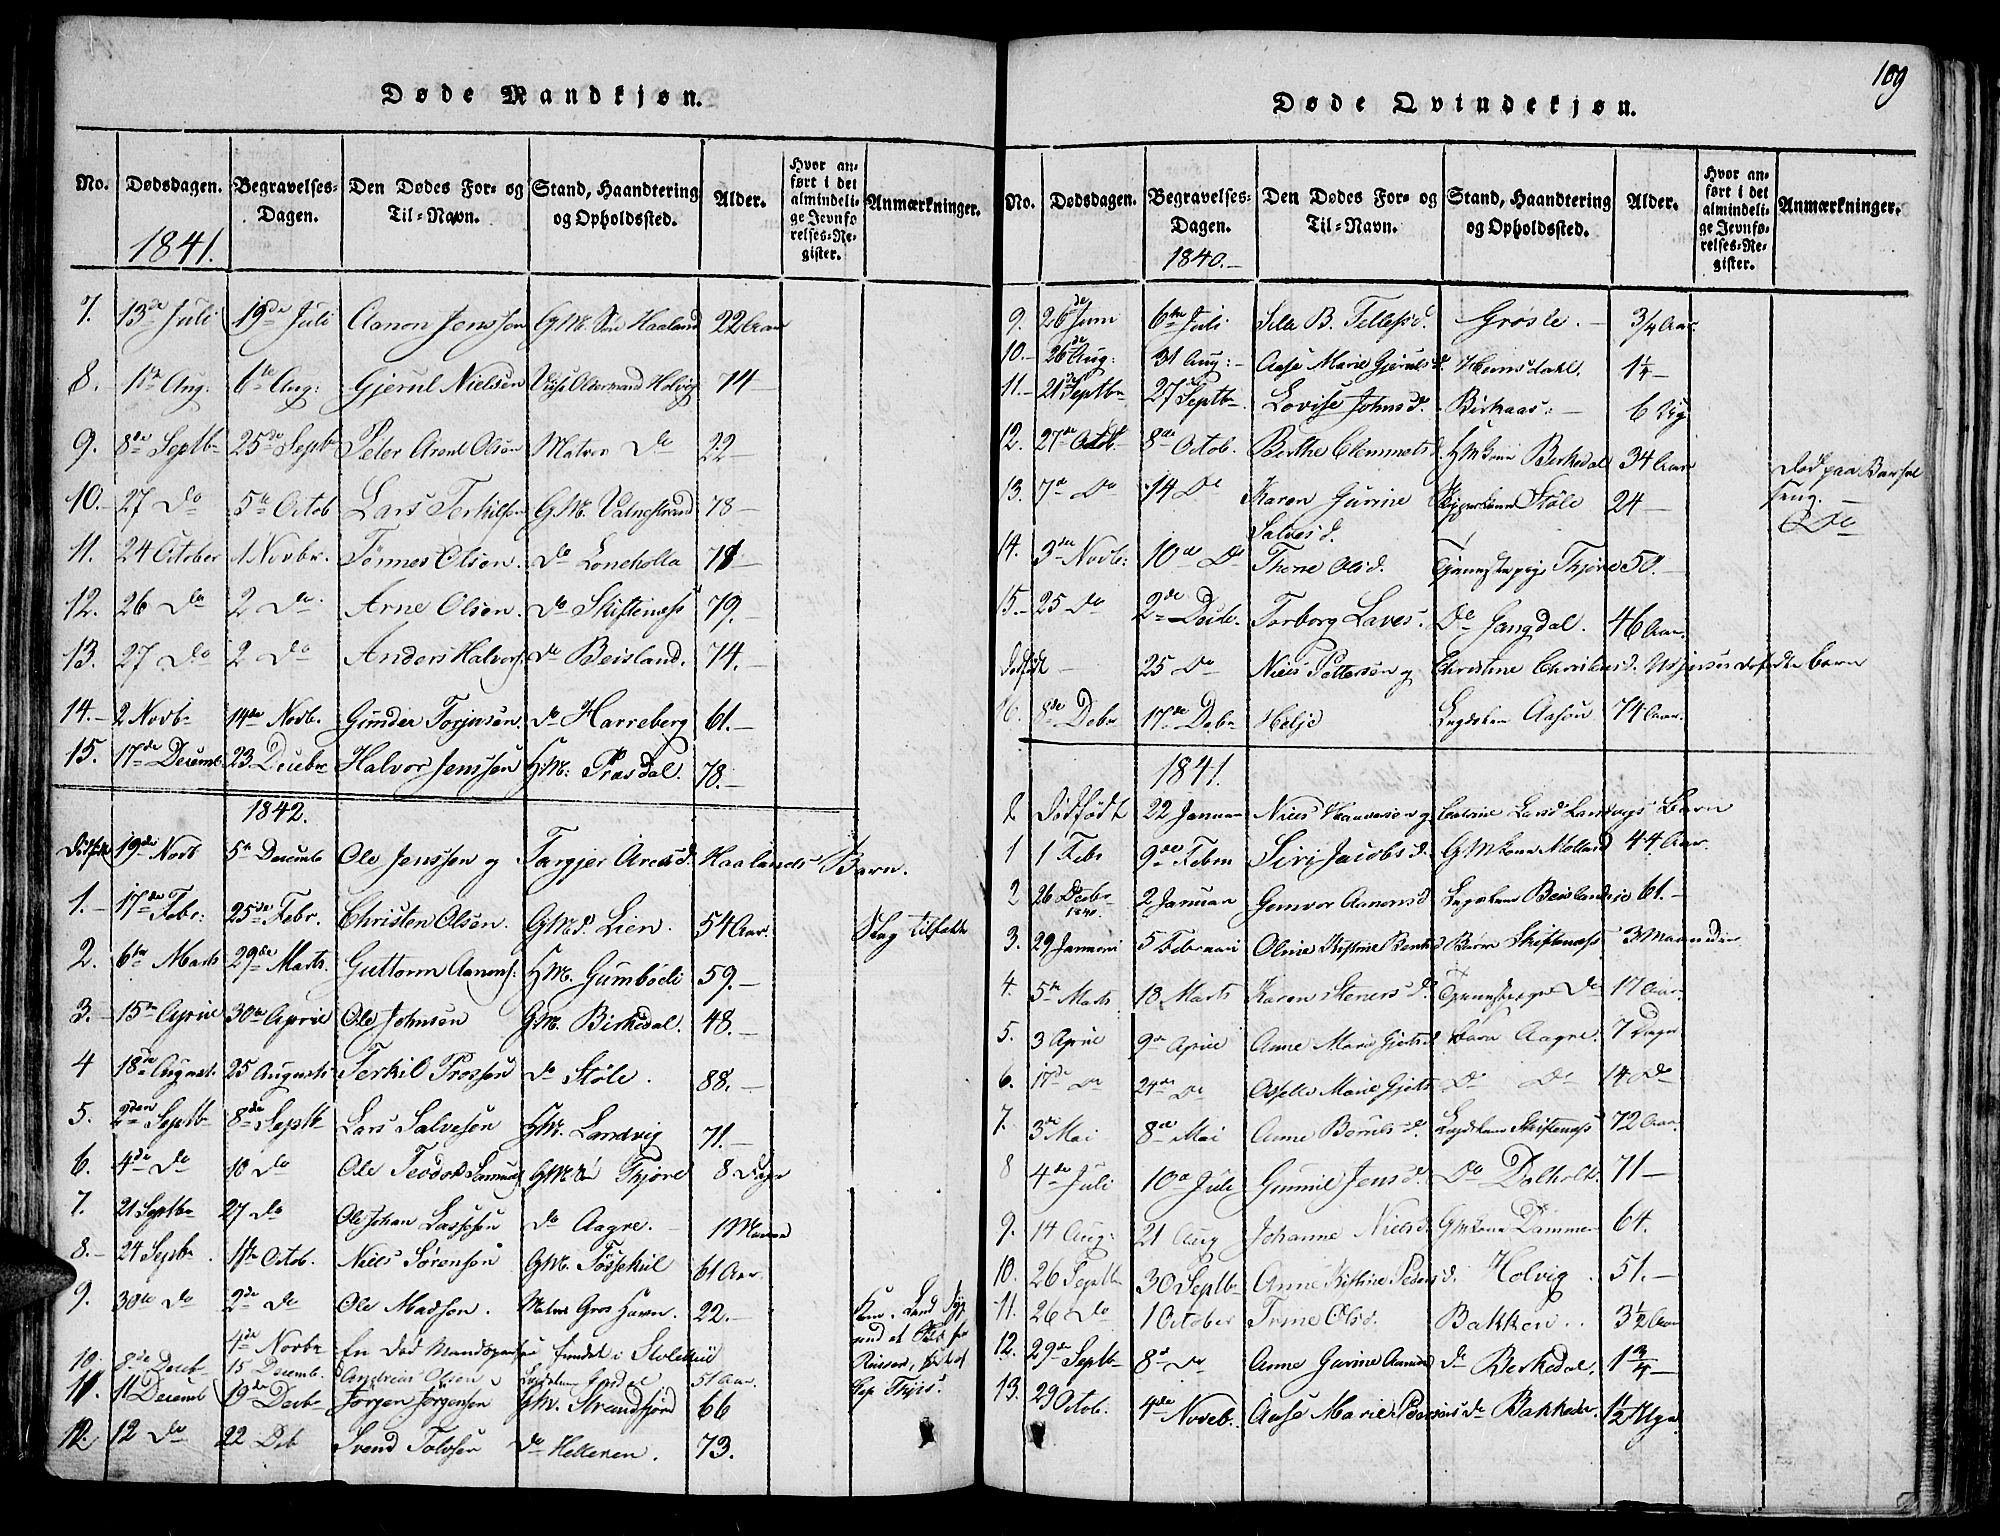 Døde Mandkjøn.
No. Dødsdagen. Begravelses-Dagen. Den Dødes For- og Til-Navn. Stand, Haandtering og Opholdssted. Alder. Hvor anført i det almindelige Jevnførelses-Register. Anmærkninger.
1841.
7. 13de Juli 19de Juli Aanon Jenssen GM. Søn Haaland 22 Aar
8. 1te Aug. 6te Aug: Gjerul Nielsen Holvig 74 —
9. 8de Septbr 25de Septb Peter Arent Olsøn Matros Do 22 —
10. 27 Do 5te Octob Lars Terkilsen GM. Valnestrand 78 —
11. 24 October 1 Novbr. Tønnes Olsøn. Do 71 —
12. 26 Do 2 Do. Arne Olsøn. Do Skiftenæss 79. —
13. 27 Do 2 Do Anders Halvors. Do Beisland. 74. —
14. — 2 Novbr 14de Novb. Gunder Torjusøn. Do Harreberg 61. —
15. 17de Decemb 23 Decebr Halvor Jenssøn HM: Præsdal. 78. —
1842.
Dødfødt 19de Novb 5te Decembr Ole Jenssen og Targjer Aresd. Haalands Barn.
1. — 17de Febr: 25de Febr. Christen Olsøn. GM. Lien. 54 Aar. Slag tilfælde
2. 6te Marts 29de Marts. Guttorm Aanons: HM. Gumbøde 59. —
3. — 15de Aprill 30te Aprill Ole Johnsøn GM. Birkedal. 48. —
4 18de August. 25 Augusti Terkil Prossøn Do Støle. 88. —
5. 2den Septbr 8de Septb Lars Salvesøn HM. Landvig 71. —
6. 4de Do 10 Do Ole Teodor GM. Søn Fhjøre 8 Dage
7. 21 Septbr 27 Do Ole Johan Lassesøn Do Aagre. — 1 Maaned
8. — 24 Sepbr. 1te Octob. Niels Sørensøn GM. Fossekiil 61 Aar.
9. 30te Do 2de Do Ole Madsøn. Matros Gros Havn. 22. —
4de Novbr En død Mandsperson fundet i Stølekiil
10. 8de Decbr 15 Decemb. Andreas Olsen 51 Aar.
11. 11 Decemb 19de Decbr Jørgen Jørgensen GM. Strandfjord 66
12. 12 Do 22 Deb Svend Tolvsen Do Hellenen. 73.
Døde Qvindekjøn.
109
No. Dødsdagen. Begravelses-Dagen. Den Dødes For- og Til-Navn. Stand, Haandtering og Opholdssted. Alder. Hvor anført i det almindelige Jevnførelses-Register. Anmærkninger.
1840. —
9. 26de Juni 6te Juli Sille B. Tellefsd. Grøsle. — 3/4 Aar
10. — 26de Aug: 31 Aug: — Aase Marie Gjerulsd. Homsdahl. 1¼ —
11. — 21de Septbr 27de Septbr Lovise Johnsd. Birkaas: — 6 Ug
12. 27de Octob. 8de Octob. Berthe Clemmetsd HMkone Birkedal 34 Aar Død paa Barsel
13. 7de Do 14 Do Karen Gurine Støle 24 — seng. —
Salvesd. Do
14. 3de Novb: 10de Do Thone Olsd. Tjenestepige Fhjøre 50. —
15. — 25 Do 2de Decbr. Torborg Laves. Do Jangdal. 46 Aar.
Dødfødt — 25 Do Niels Pettersøn og Christine Christensd. Barn
16. 8de Debr 17de Debr Helje Aasøn 74 Aar.
1841.
Dødfødt 22 Januar Niels og Larsd Landvigs Barn
1 1 Febr 9de Febru Siri Jacobsd. GMkone Molland 44 Aar.
2 26 Decbr 1840. 2 Januar Gunvor Aanonsd 61. —
3. 29 Januari 5 Februari Oline Kistine Bentsd Børn Skiftenæss 3 Maaneder
4. 5te Marts 13 Marts Karen Stenersd. Tjenestepige Do 17 Aar.
5. 3 Aprill 9de Aprill Anne Marie Gjertsd Barn Aagre. 7 Dage
6. 17de Do 24de Do Marie Gjerts Do Do 14 Do
7. 3de Mai 8de Mai Anne Berulsd. Skiftenæss 72 Aar.
8 4de Juli 10de Juli Gunnil Jensd. Do Dalholt. 71 —
9. 14 Aug: 21 Aug Johanne Nielsd. GMkone Dammen 64.
10. 26 Septbr 30 Septbr Anne Kistine Pedersd. Holvig. 51. —
11. 26 Do 1 October Trine Olsd. Bakken.. 3½ Aar
12. 29de Septbr 8de Do Anne Gurine Aanonsd Do Berkedal. 1 3/4 —
13. 29 Octob. 4de Noveb. Aase Marie Pedersd Do Bakkedn 1½ Uge